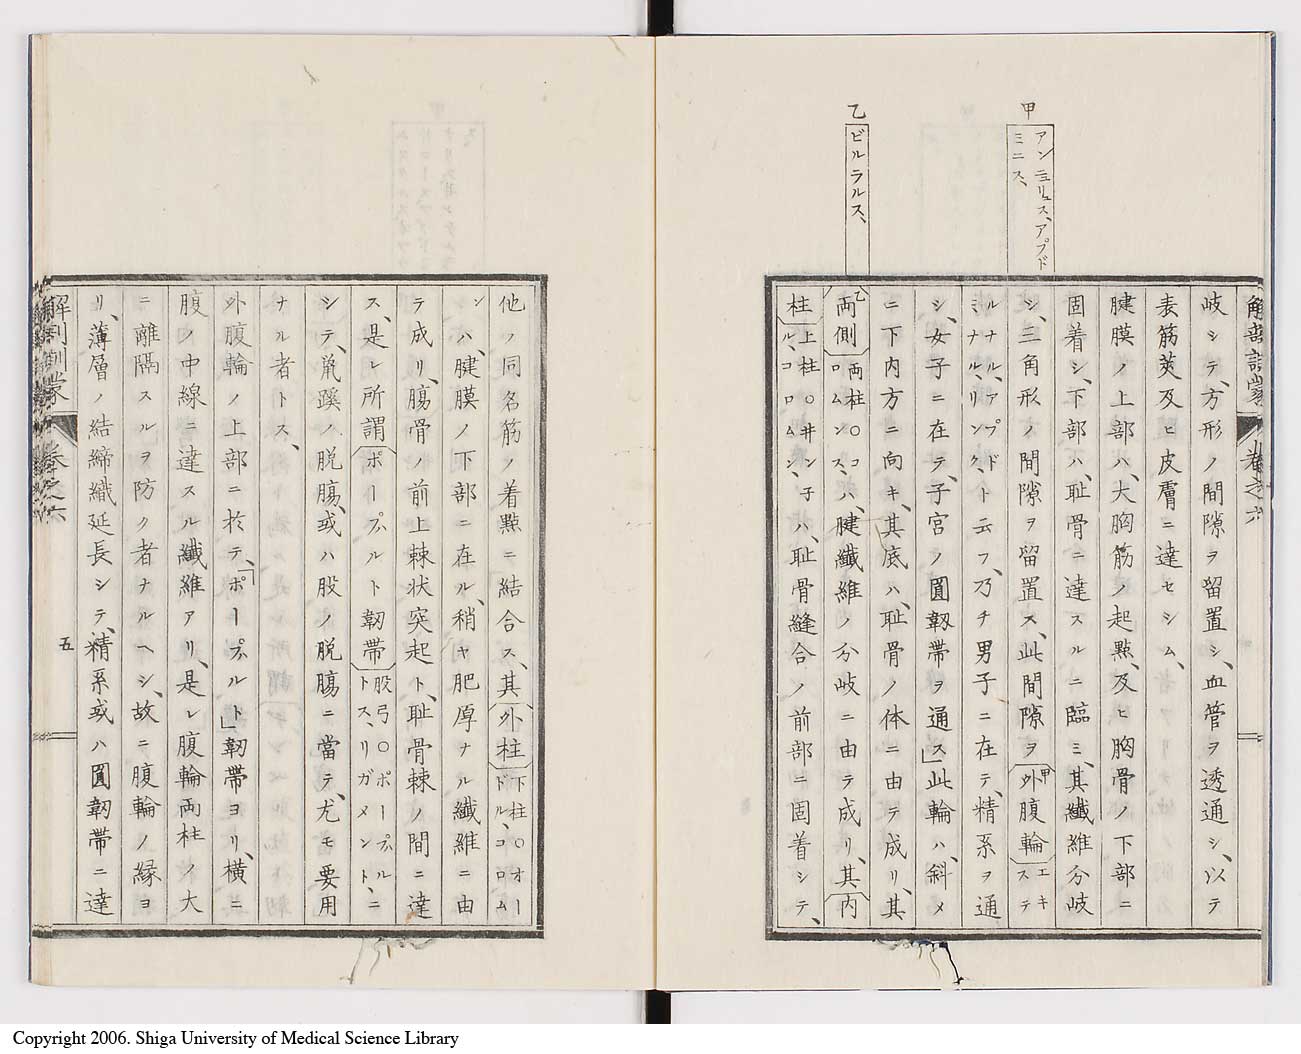 甲
アンニュリュス、アブド
ミニス、
乙
ビルラルス、
解剖訓蒙
卷之六
岐シテ、方形ノ間隙ヲ留置シ、血管ヲ透通シ、以テ
表筋莢及ヒ皮膚ニ達セシム、
腱膜ノ上部ハ、大胸筋ノ起點、及ヒ胸骨ノ下部ニ
固着シ、下部ハ、耻骨ニ達スルニ臨ミ、其纖維分岐
シ、三角形ノ間隙ヲ留置ス、此間隙ヲ甲外腹輪エキ
ステ
ルナル、アブド
ミナル、リンク、ト云フ、乃チ男子ニ在テ、精系ヲ通
シ、女子ニ在テ、子宮ノ圓韌帶ヲ通ス」此輪ハ、斜メ
ニ下內方ニ向キ、其底ハ、耻骨ノ体ニ由テ成リ、其
乙両側両柱〇コ
ロムンス、ハ、腱纖維ノ分岐ニ由テ成リ、其內
柱上柱〇井ン子
ル、コロムン、ハ、耻骨縫合ノ前部ニ固着シテ、
他ノ同名筋ノ着點ニ結合ス、其外柱下柱〇オー
ドル、コロム
ンハ、腱膜ノ下部ニ在ル、稍ヤ肥厚ナル纖維ニ由
テ成リ、膓骨ノ前上棘状突起ト、耻骨棘ノ間ニ達
ス、是レ所謂ポープルト韌帶股弓〇ポープル
トス、リガメント、ニ
シテ、鼠蹊ノ脱膓、或ハ股ノ脱膓ニ當テ、尤モ要用
ナル者トス、
外腹輪ノ上部ニ於テ、「ポープルト」韌帶ヨリ、橫ニ
腹ノ中線ニ達スル纖維アリ、是レ腹輪両柱ノ大
ニ離隔スルヲ防ク者ナルヘシ、故ニ腹輪ノ縁ヨ
リ、薄層ノ結締織延長シテ、精系或ハ圓韌帶ニ達
解剖訓蒙
卷之六
五
Copyright 2006. Shiga University of Medical Science Library